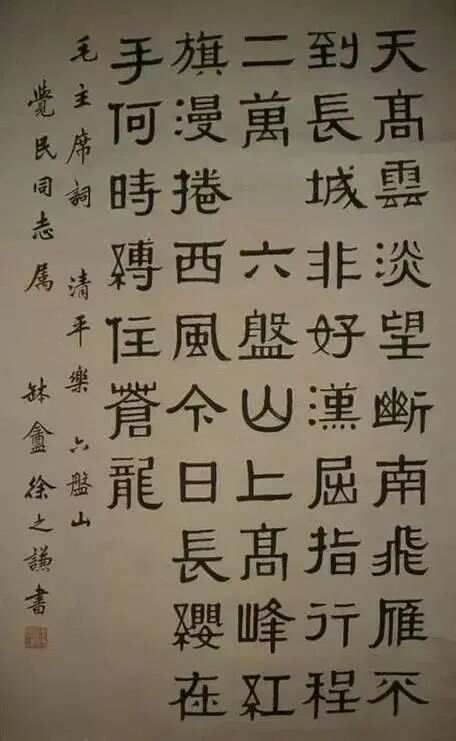 天髙雲淡望斷南飛雁不
到長城非好漢屈指行程
二萬 六盤山上髙峰紅
旗漫捲西風今日長纓在
手何時縛住蒼龍
毛主席詞 清平樂 六盤山
覺民同志属 缽盦徐之謙書